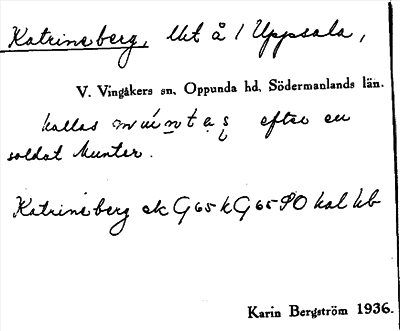 Katrineberg, lht å / Uppsala,
V. Vingåkers sn, Oppunda hd, Södermanlands län.
kallas muntas efter en
soldat Munter.
Katrineberg ek G 65 k G 65 SO kal hb
Karin Bergström 1936.